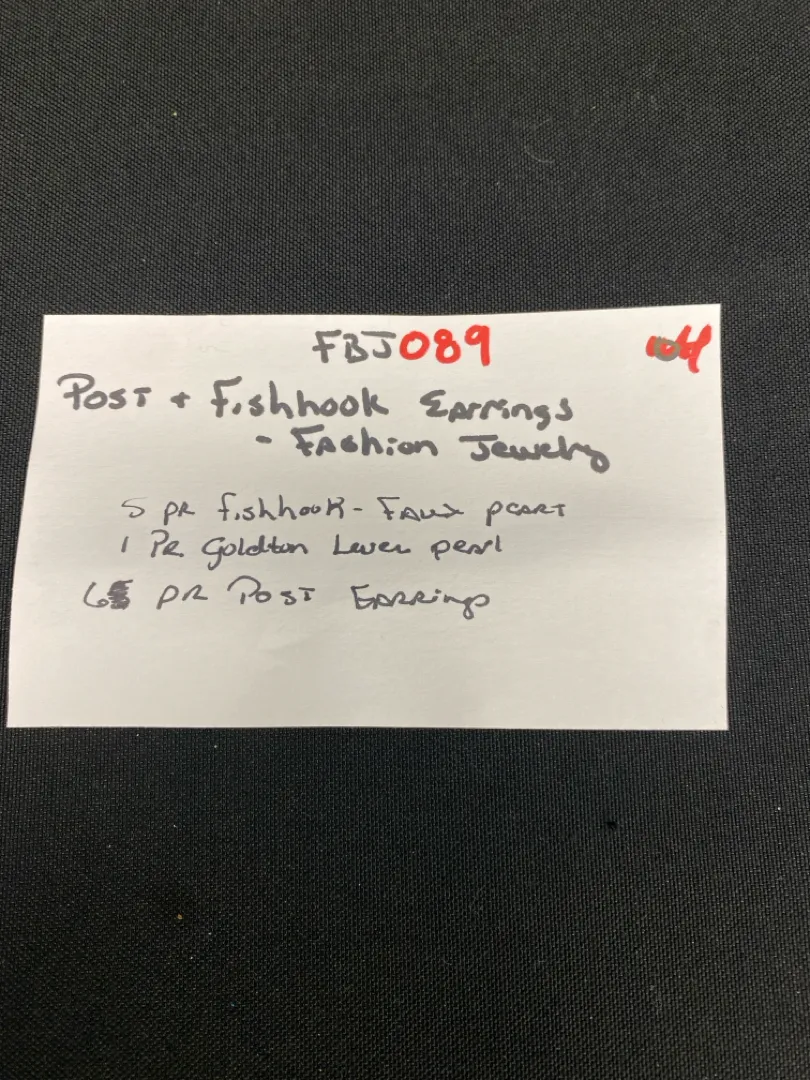 FBJ089
Post + Fishhook Earrings
- Fashion Jewelry
5 PR fishhook - Faux pearl
1 PR Goldton Lever pearl
6 PR Post Earrings